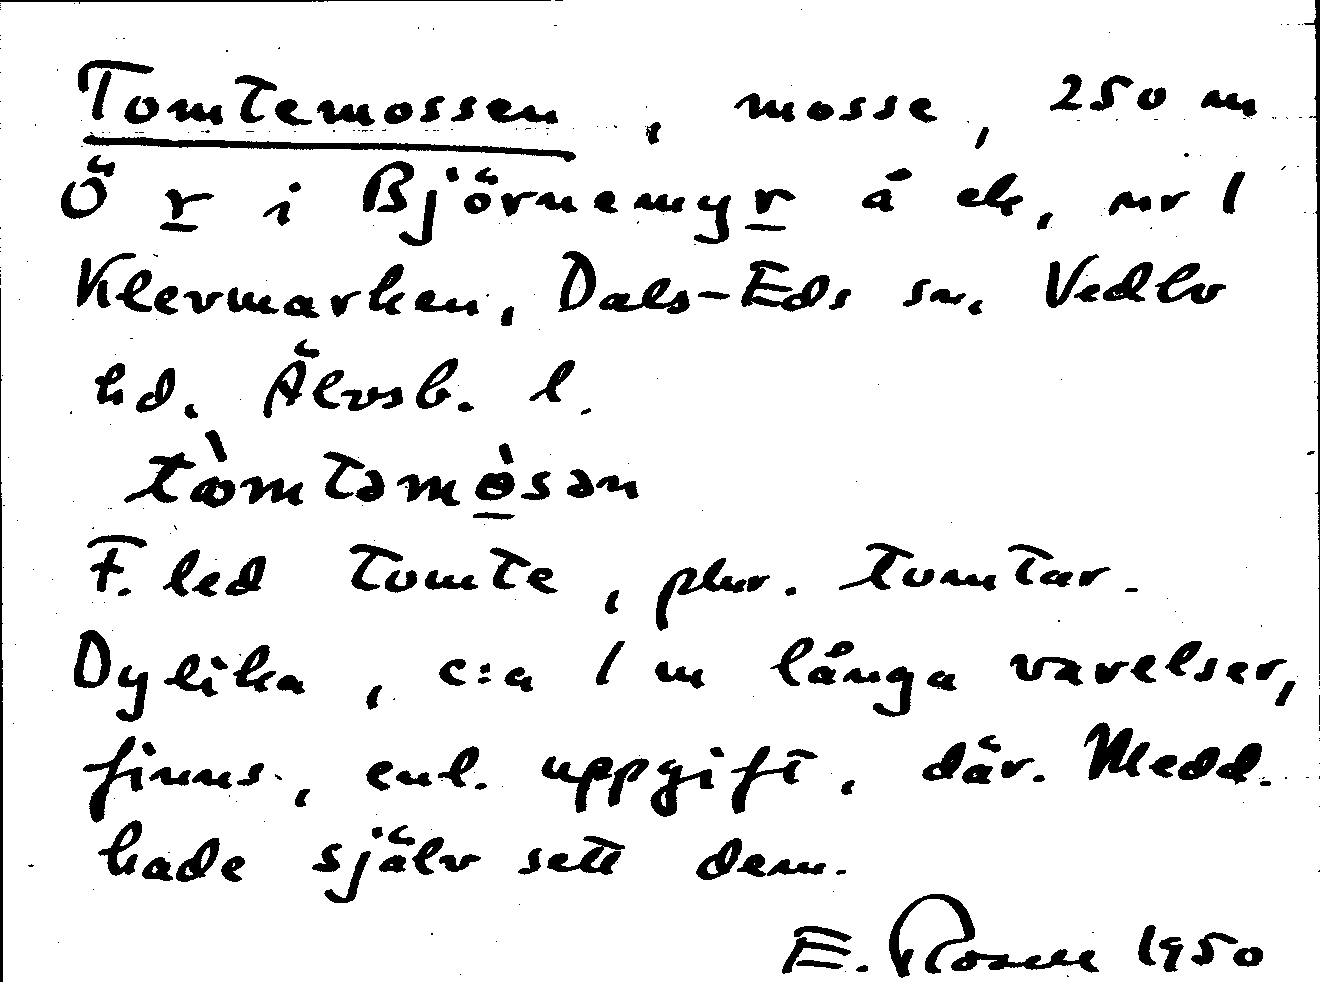 Tomtemossen, mosse, 250 m
Ö r i Björnemyr å ek, nr 1
Klevmarken, Dals-Eds sn. Vedbo
hd. Älvsb. l.
tòmtəmòsən
F. led tomte, plur. tomtar.
Dylika, c:a 1 m långa varelser,
finns, enl. uppgift, där. Medd.
hade själv sett dem.
E. Rosell 1950